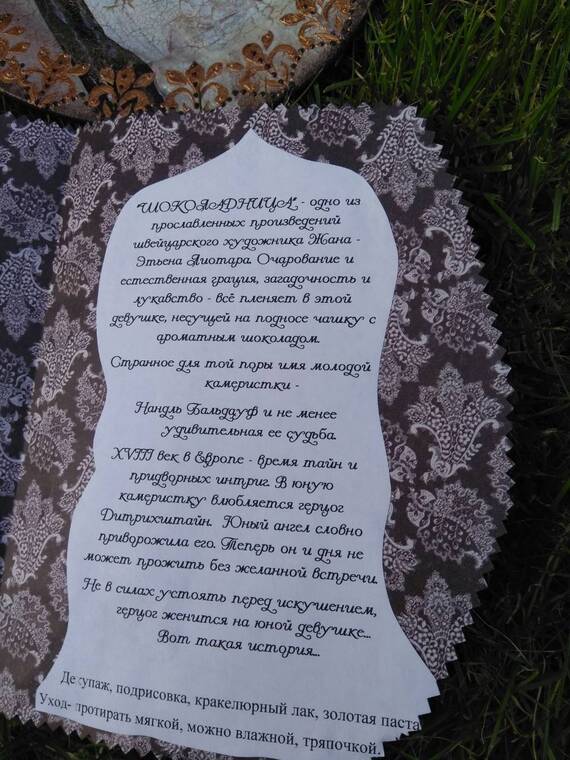 "ШОКОЛАДНИЦА" - одно из
прославленных произведений
швейцарского художника Жана -
Этьена Лиотара. Очарование и
естественная грация, загадочность и
лукавство - всё пленяет в этой
девушке, несущей на подносе чашку с
ароматным шоколадом.
Странное для той поры имя молодой
камеристки -
Нандль Бальдауф и не менее
удивительная ее судьба.
XVIII век в Европе - время тайн и
придворных интриг. В юную
камеристку влюбляется герцог
Дитрихштайн. Юный ангел словно
приворожила его. Теперь он и дня не
может прожить без желанной встречи.
Не в силах устоять перед искушением,
герцог женится на юной девушке...
Вот такая история...
Декупаж, подрисовка, кракелюрный лак, золотая паста
Уход- протирать мягкой, можно влажной, тряпочкой.